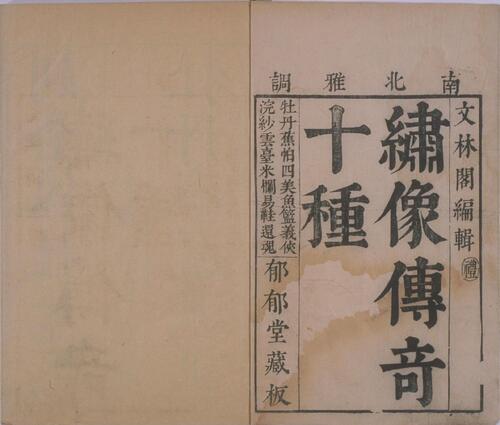 南北雅調
文林閣編輯
禮
繡像傳奇
十種
牡丹蕉帕四美魚籃義俠
浣紗雲臺米欄易鞋還魂
郁郁堂藏板